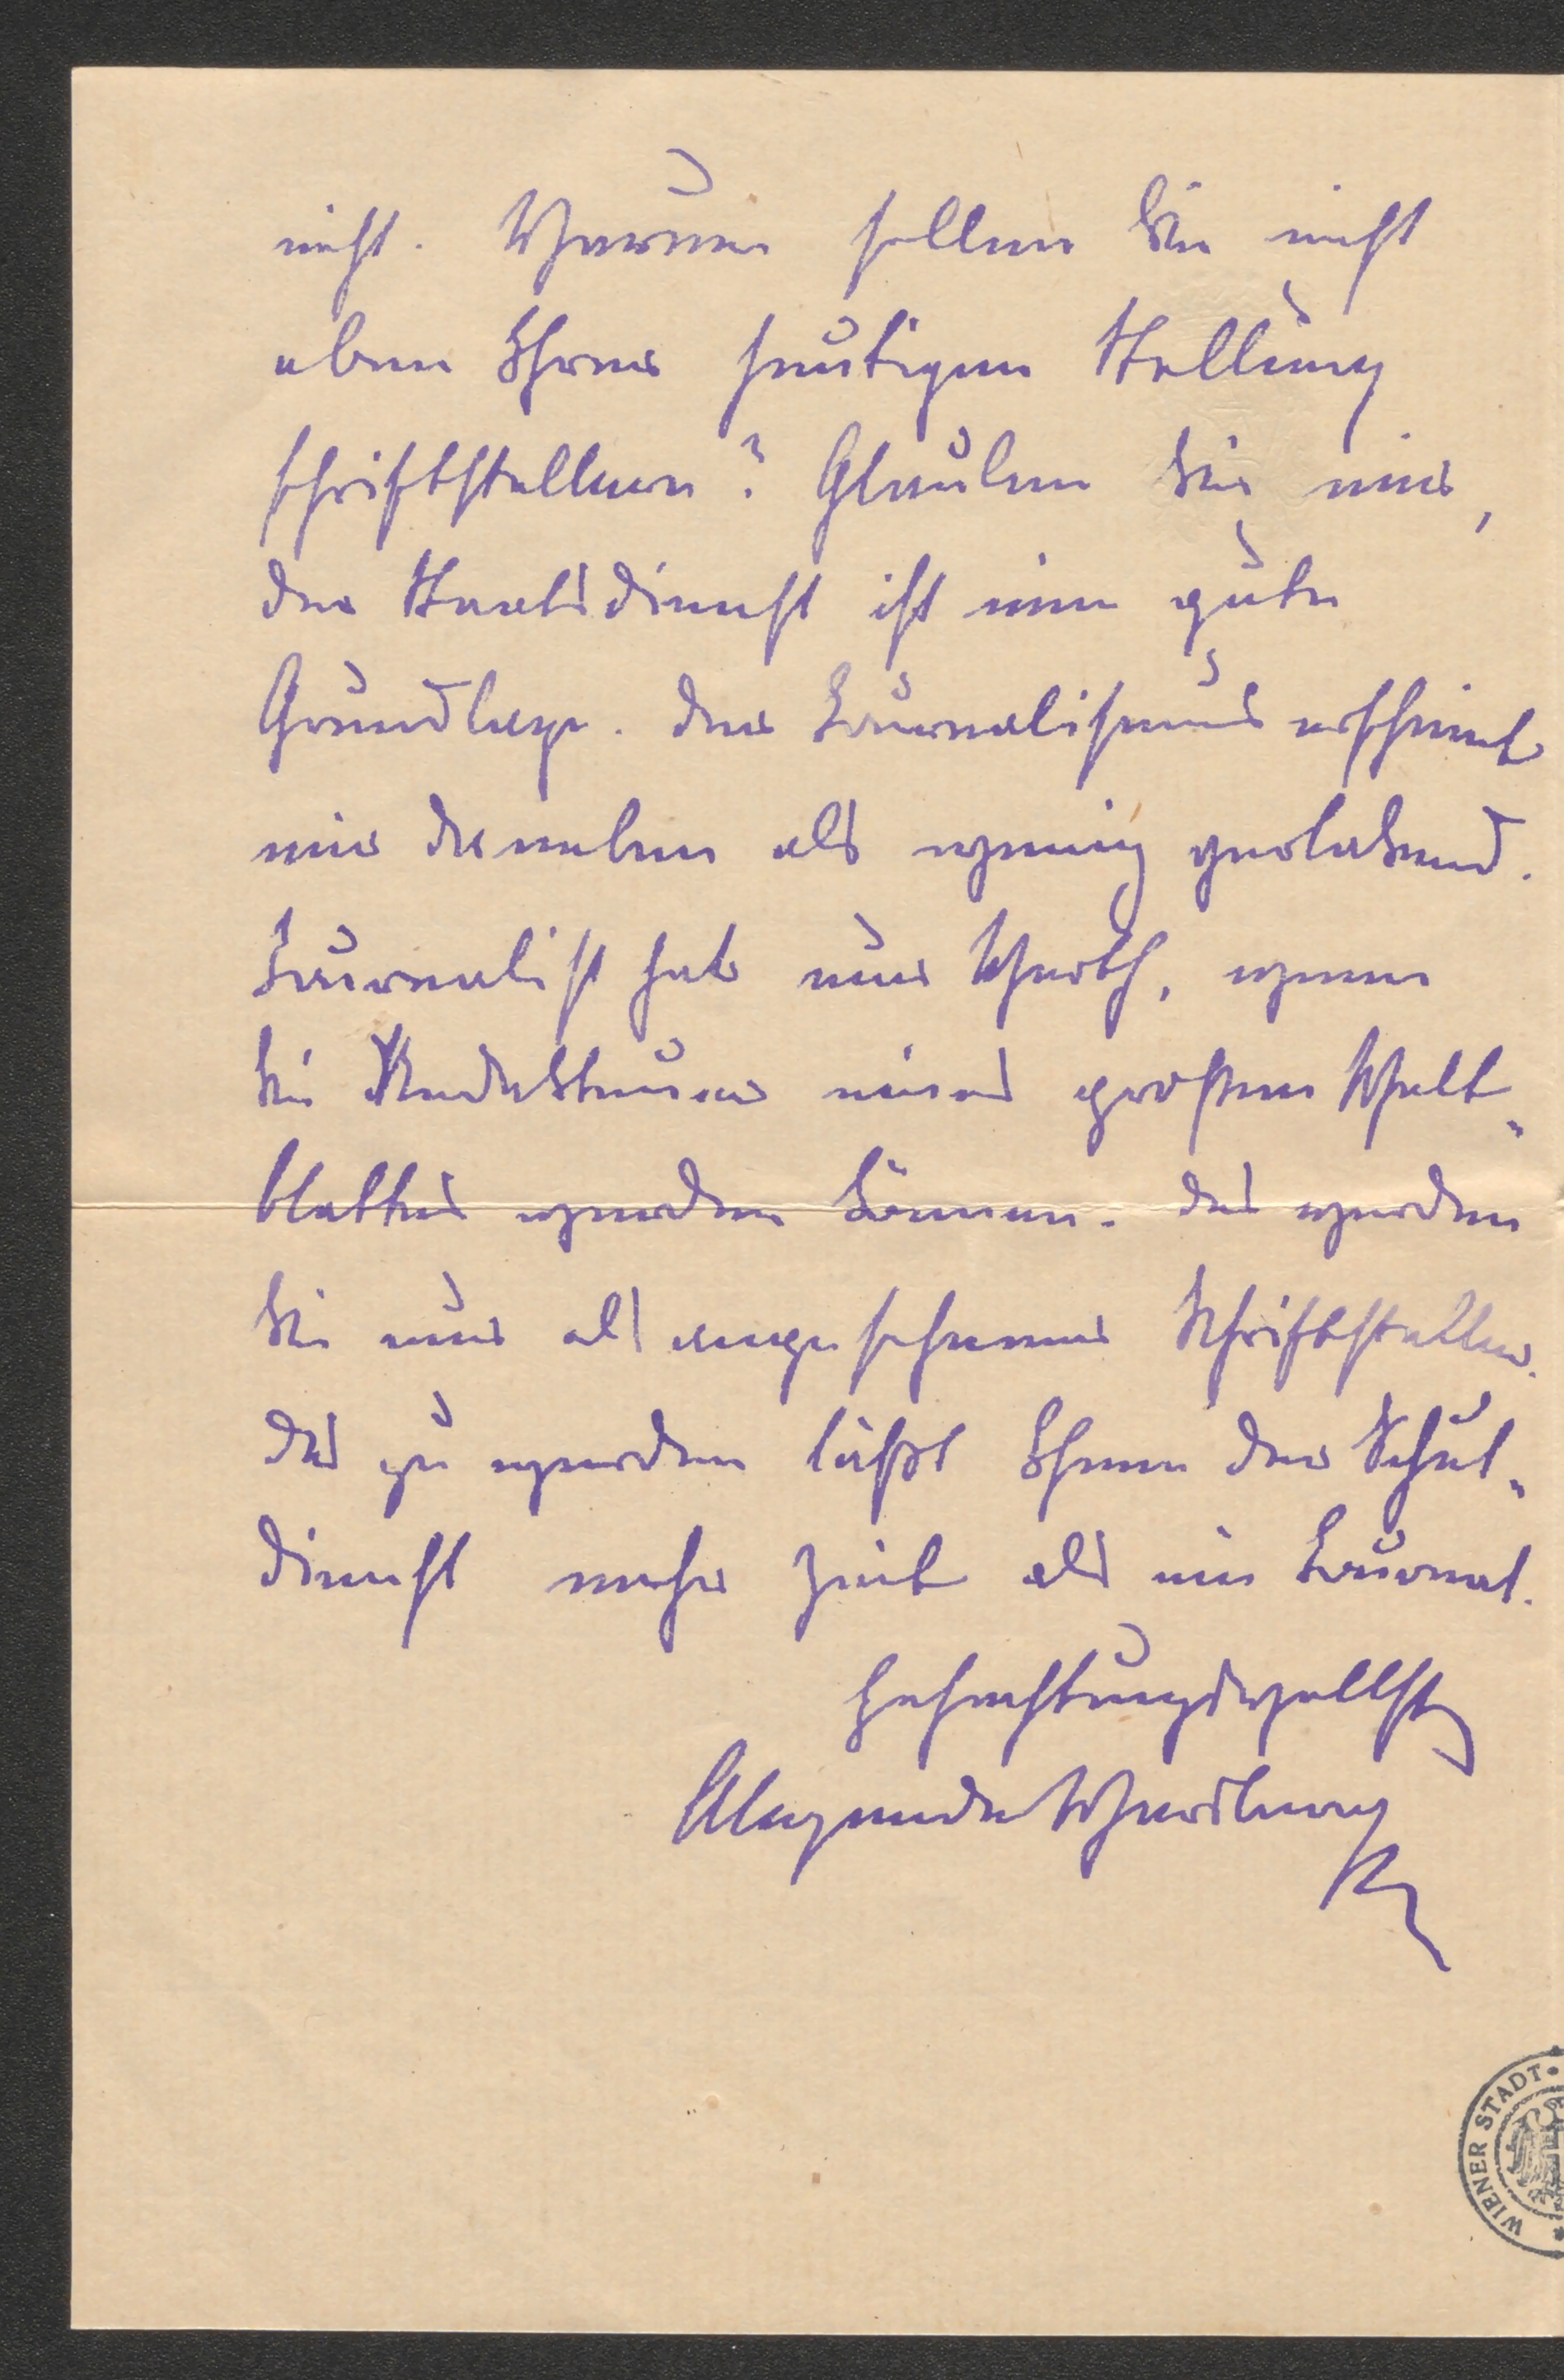 nicht. Warum sollen Sie nicht
Ihrer heutigen Stellung
schriftstellern? Glauben Sie mir,
der Staatsdienst ist eine gute
Grundlage. Der Journalismus erscheint
mir daneben als wenig verlockend.
Journalist hat nur Werth, wenn
Sie Redakteur eines großen Welt-
blattes werden können. Das werden
Sie nur als angesehener Schriftsteller.
Das zu werden läßt Ihnen der Schul-
dienst mehr Zeit als ein Journal.
Hochachtungsvollst
WIENER STADT